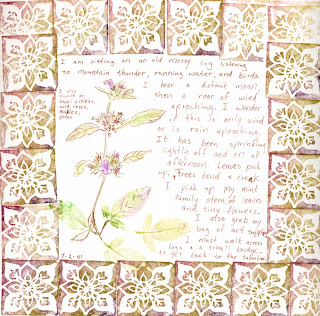 I am sitting on an old mossy log listening
to mountain thunder, running water, and birds
I hear a distant moan,
then a roar of wind
aproching. I wonder
if this is only wind
or is rain aproching.
It has been sprinkling
lightly off and on all
afternoon. Leaves pick
up, trees bend & creak.
I pick up my mint
family stem of leaves
and tiny flowers.
I also grab my
bag of art supplies
I must walk across
logs & a small bridge
to get back to the suburban.
I also
saw: violets,
wild roses,
7-2-01